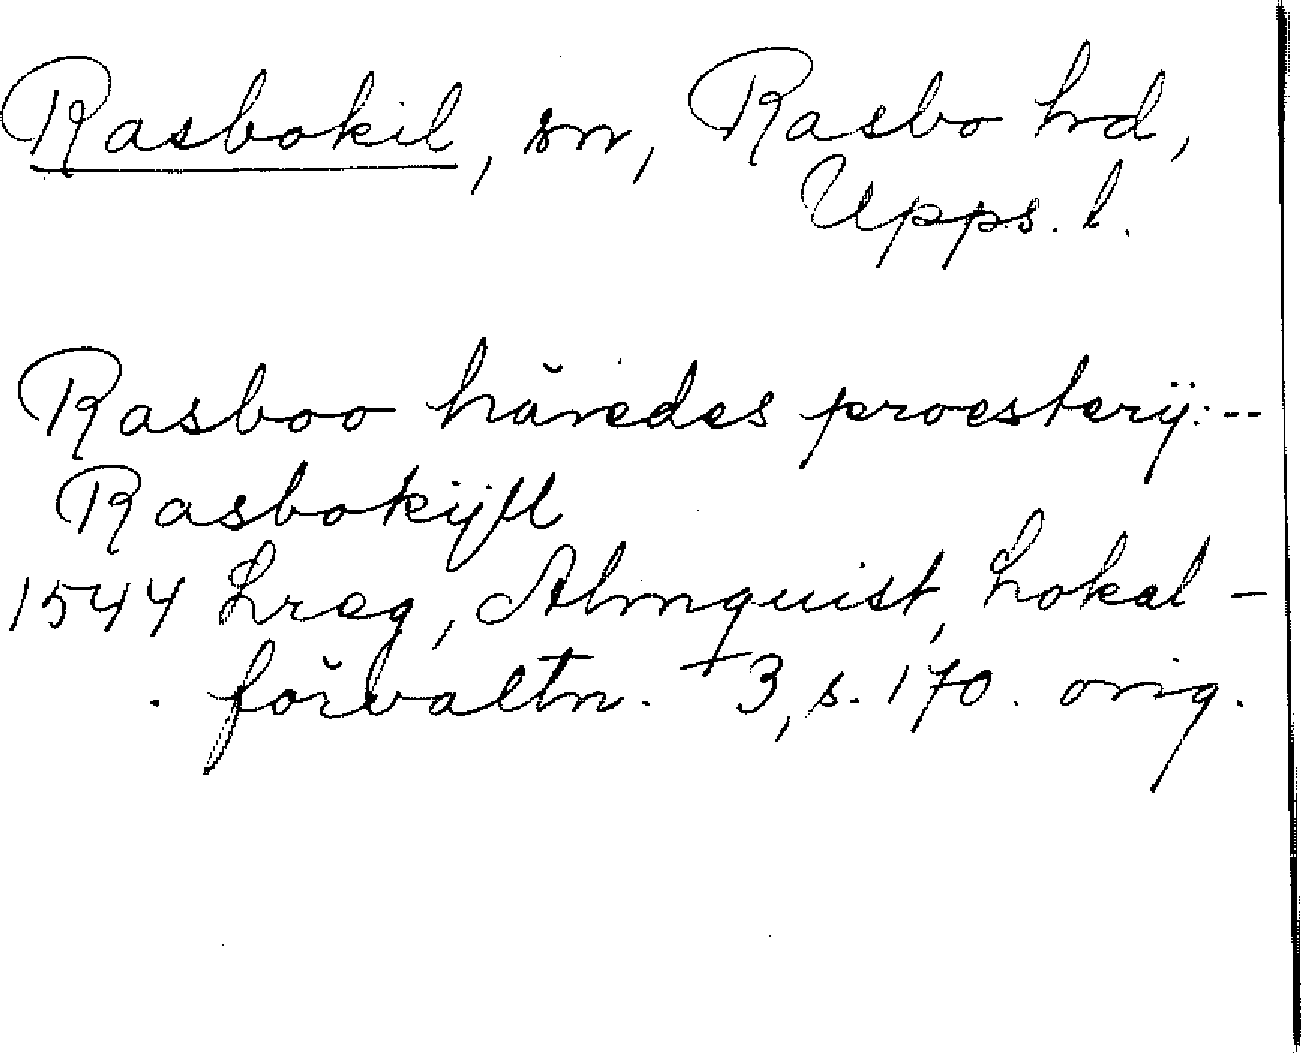 Rasbokil, sn, Rasbo hd,
Upps. l.
Rasboo häredes proesterij: --
Rasbokijll
1544 Lreg, Almquist, Lokal-
förvaltn. +3, s. 170. orig.